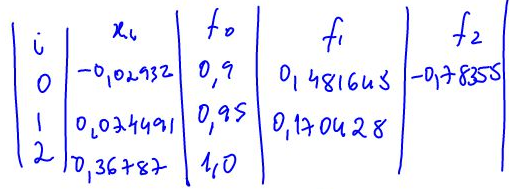 i xᵢ f₀ f₁ f₂
0 -0,02932 0,9 0,481643 -0,78355
1 0,074491 0,95 0,170428
2 0,36787 1,0